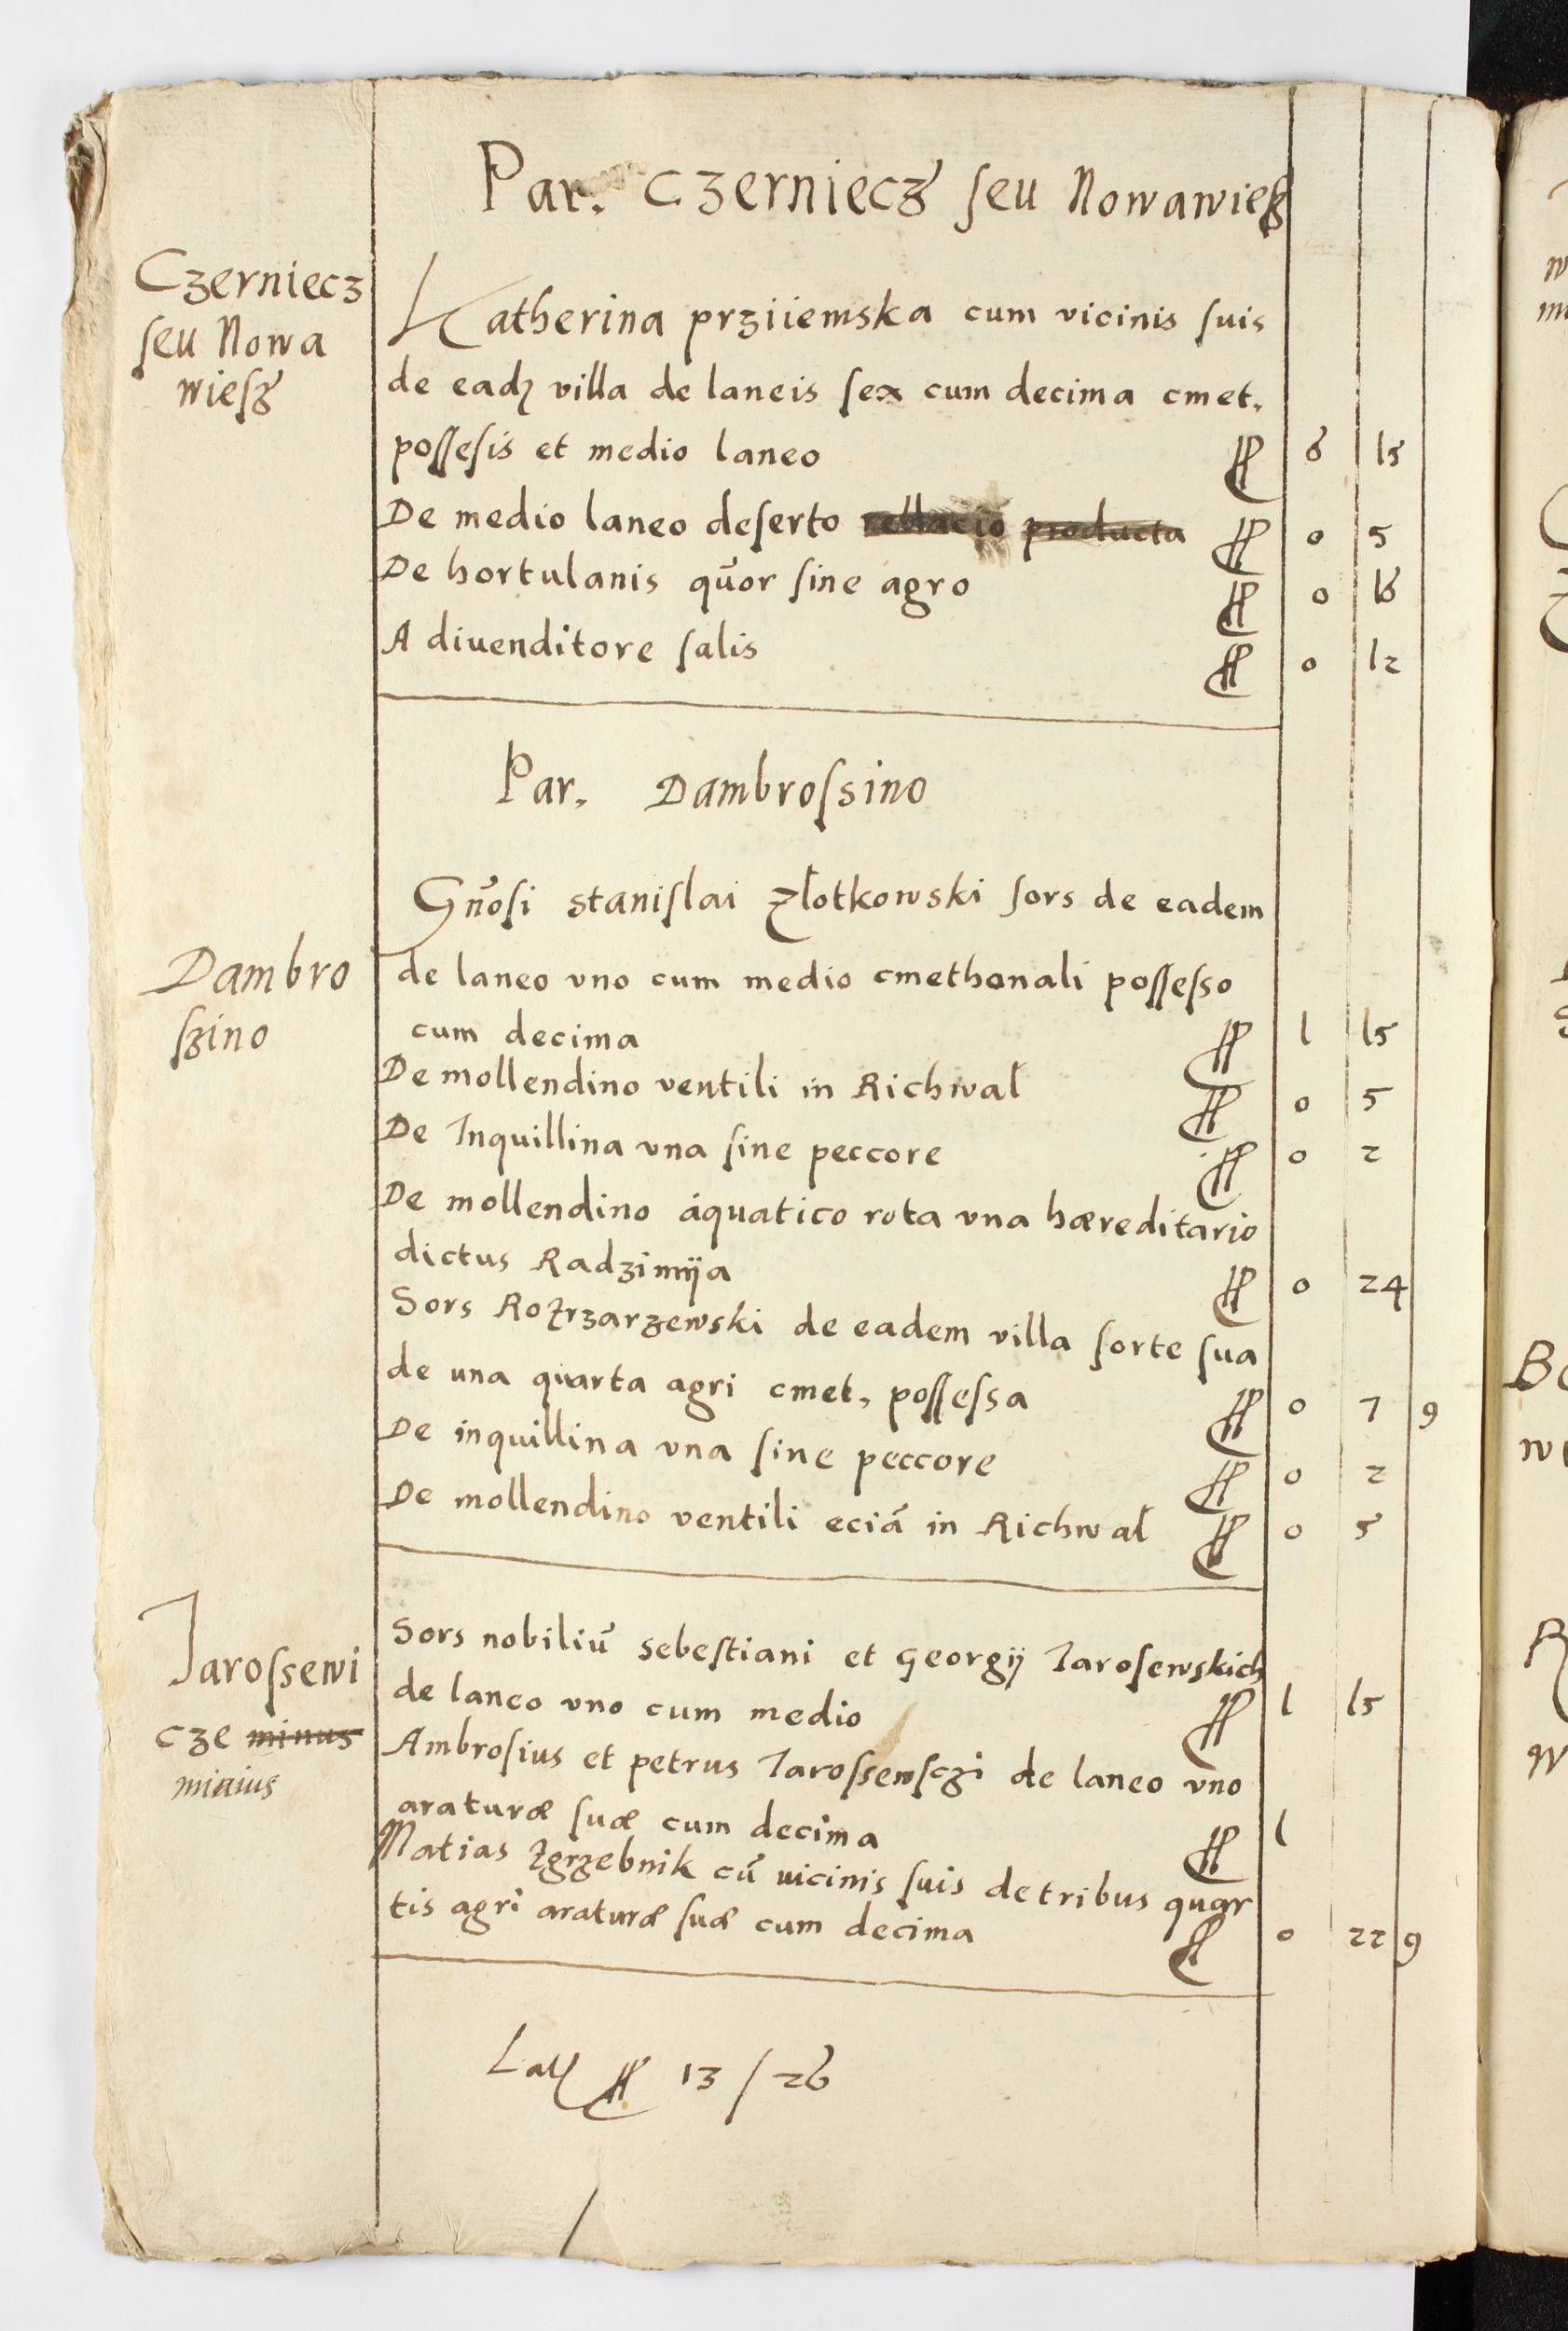 Par. Czerniecz seu Nowawiesz
Czerniecz
seu Nowa
wiesz
Katherina prziiemska cum vicinis suis
de eadȝ villa de laneis sex cum decima cmet.
possesis et medio laneo fl 6 15
De medio laneo deserto rellacio producta fl 0 5
De hortulanis quor sine agro fl 0 16
A diuenditore salis fl 0 12
Par. Dambrossino
Dambro
szino
Gnosi stanislai Zlotkowski sors de eadem
de laneo vno cum medio cmethonali possesso
cum decima fl 1 15
De mollendino ventili in Richwal fl 0 5
De Inquillina vna sine peccore fl 0 2
De mollendino aquatico rota vna hæreditario
dictus Radzimija fl 0 24
Sors Rozrzarzewski de eadem villa sorte sua
de una quarta agri cmet. possessa fl 0 7 9
De inquillina vna sine peccore fl 0 2
De mollendino ventili eciã in Richwal fl 0 5
Jarossewi
cze minus
maius
Sors nobiliũ sebestiani et Georgij Jarosewskich
de laneo vno cum medio fl 1 15
Ambrosius et petrus Jarossewsczi de laneo vno
araturæ suæ cum decima fl 1
Matias Zgrzebnik cũ uicinis suis de tribus quar
tis agri araturæ suæ cum decima fl 0 22 9
fl 13 / 26